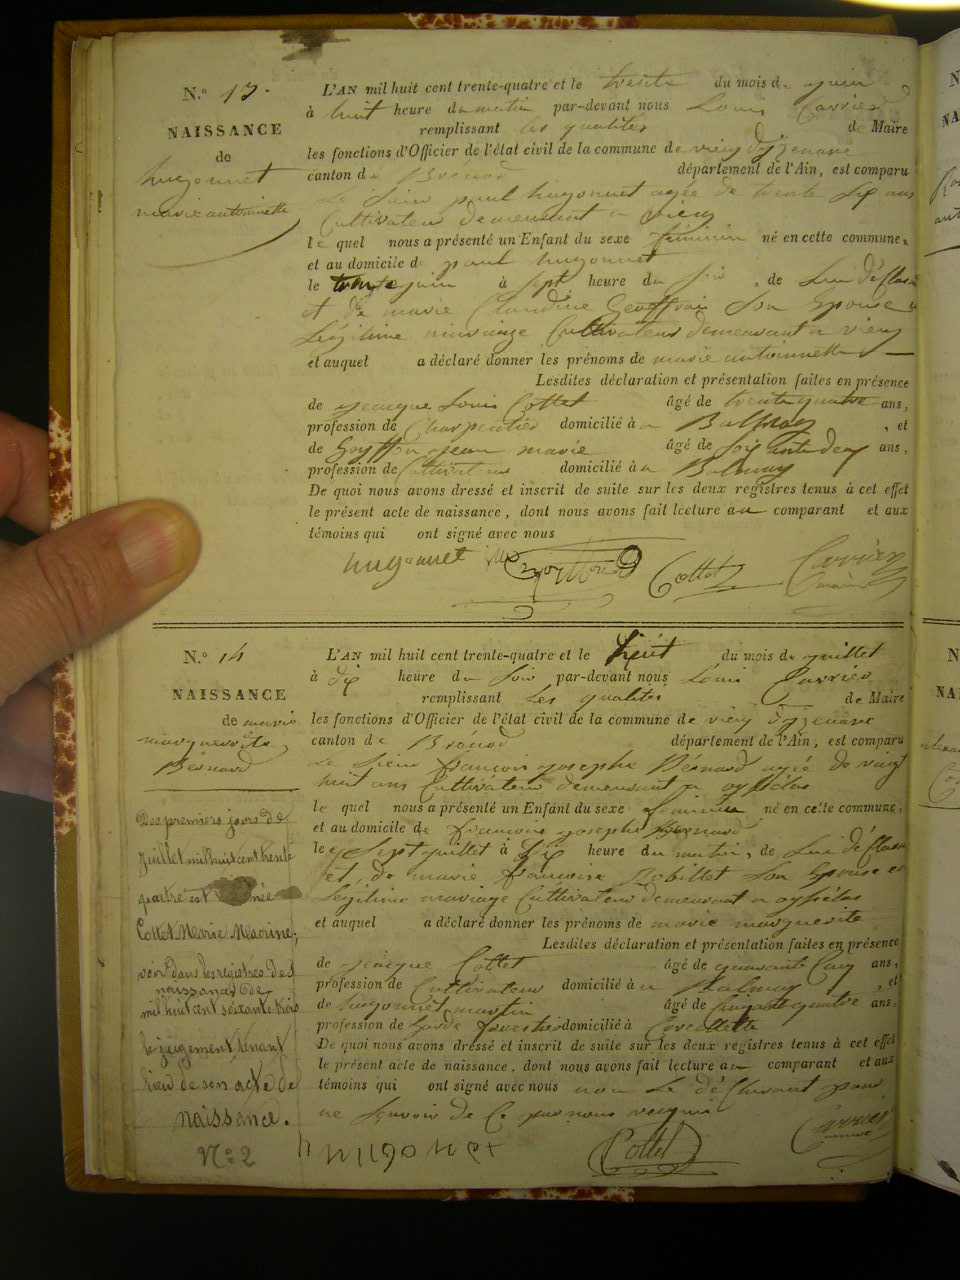 N.º 13.
NAISSANCE
de
hugonnet
marie antoinnette
L'AN mil huit cent trente-quatre et le trente du mois de juin
à huit heure du matin par-devant nous Louis Carrier
remplissant les qualités de Maire
les fonctions d'Officier de l'état civil de la commune de vieu dyzenave
canton de Brénod département de l'Ain, est comparu
Le Sieur paul hugonnet agée de trente six ans
Cultivateur demeurant a vieu
le quel nous a présenté un Enfant du sexe féminin né en cette commune,
et au domicile de paul hugonnet
le juin à sept heure du soir, de Lui déclarant
et de marie Claudine Geoffrai Son Epouse
Légitime mariage Cultivateurs demeurant a vieu
et auquel a déclaré donner les prénoms de marie antoinnette
Lesdites déclaration et présentation faites en présence
de jeacque Louis Cottet âgé de trente quatre ans,
profession de Charpentier domicilié à a Balmay, et
de jean marie âgé de ans,
profession de Cultivateur domicilié à a Balmay
De quoi nous avons dressé et inscrit de suite sur les deux registres tenus à cet effet
le présent acte de naissance, dont nous avons fait lecture au comparant et aux
témoins qui ont signé avec nous
hugonnet Cottet Carrier
maire
N.º 14
NAISSANCE
de marie
marguerite
Bérnard
L'AN mil huit cent trente-quatre et le huit du mois de juillet
à dix heure du Soir par-devant nous Louis Carrier
remplissant Les qualités de Maire
les fonctions d'Officier de l'état civil de la commune de vieu dyzenave
canton de Brénod département de l'Ain, est comparu
Le Sieur francois josephe Bérnard agée de vingt
huit ans Cultivateur demeurant a
le quel nous a présenté un Enfant du sexe féminin né en cette commune,
et au domicile de francois josephe Bernard
le Sept juillet à Dix heure du matin, de Lui déclarant
et de marie francoise Robillet Son Epouse et
Légitime mariage Cultivateurs demeurant a
et auquel a déclaré donner les prénoms de marie marguerite
Lesdites déclaration et présentation faites en présence
de jeacque Cottet âgé de quarante Cinq ans,
profession de Cultivateur domicilié à a Balmay, et
de hugonnet martin âgé de quatre ans,
profession de Garde forestier domicilié à Corcelette
De quoi nous avons dressé et inscrit de suite sur les deux registres tenus à cet effet
le présent acte de naissance, dont nous avons fait lecture au comparant et aux
témoins qui ont signé avec nous non Le déClarant pour
ne Scavoir de Ce par nous requis
hugonet Cottet Carrier
maire
Des premiers jours de
Juillet mil huit cent trente
quatre est née
Cottet Marie Maurine;
voir dans les registres des
naissances de
mil huit cent soixante trois
le jugement tenant
lieu de son acte de
naissance.
N.º 2